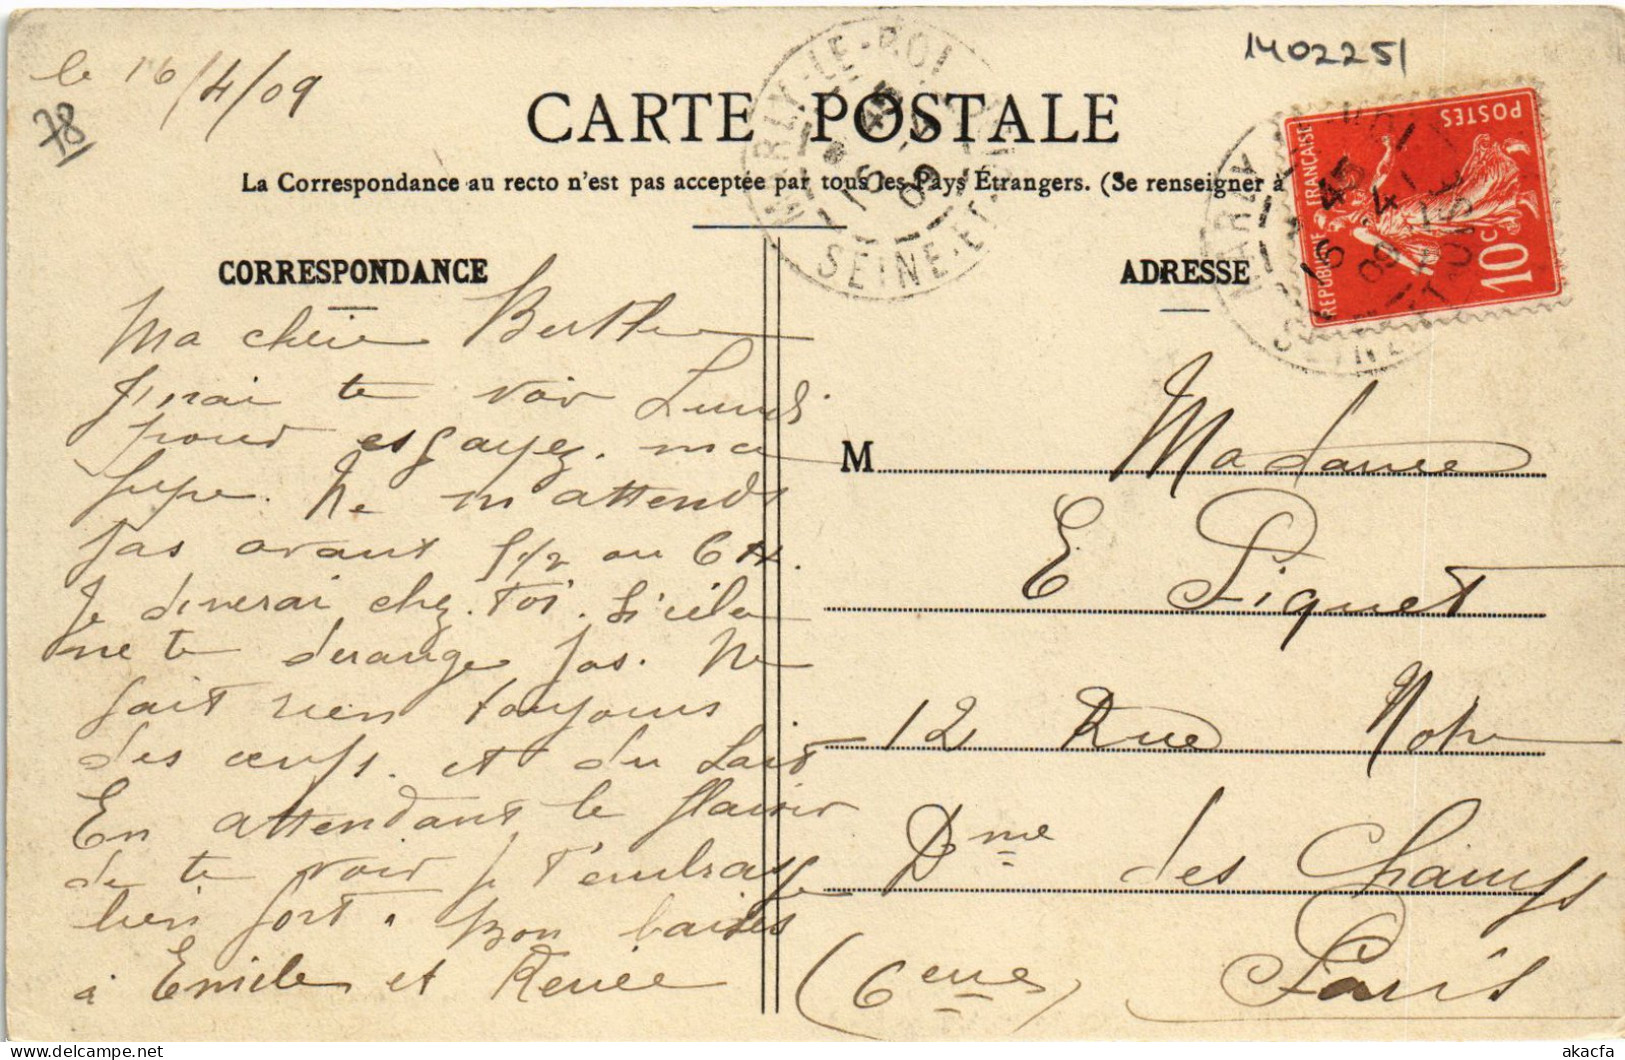 le 16/4/09
78
1402251
CARTE POSTALE
La Correspondance au recto n'est pas acceptée par tous les Pays Étrangers. (Se renseigner à
MARLY-LE-ROI
16 -4 09
SEINE-ET-
REPUBLIQUE FRANCAISE
POSTES
10c
CORRESPONDANCE
Ma chérie Berthe
J'irai te voir Lundi
pour essayez. ma
jupe. Ne m'attends
pas avant 5 1/2 ou 6 H.
Je dinerai chez. toi. Si cela
ne te derange pas. Ne
fait rien toujours
des œufs. et du lait
En attendant le plaisir
de te voir je t'embrasse
bien fort. Bon baises
à Emile et Renée
ADRESSE
M Madame
E Piquet
12 Rue Notre
Dme des Champs
(6eme) Paris
akacfa